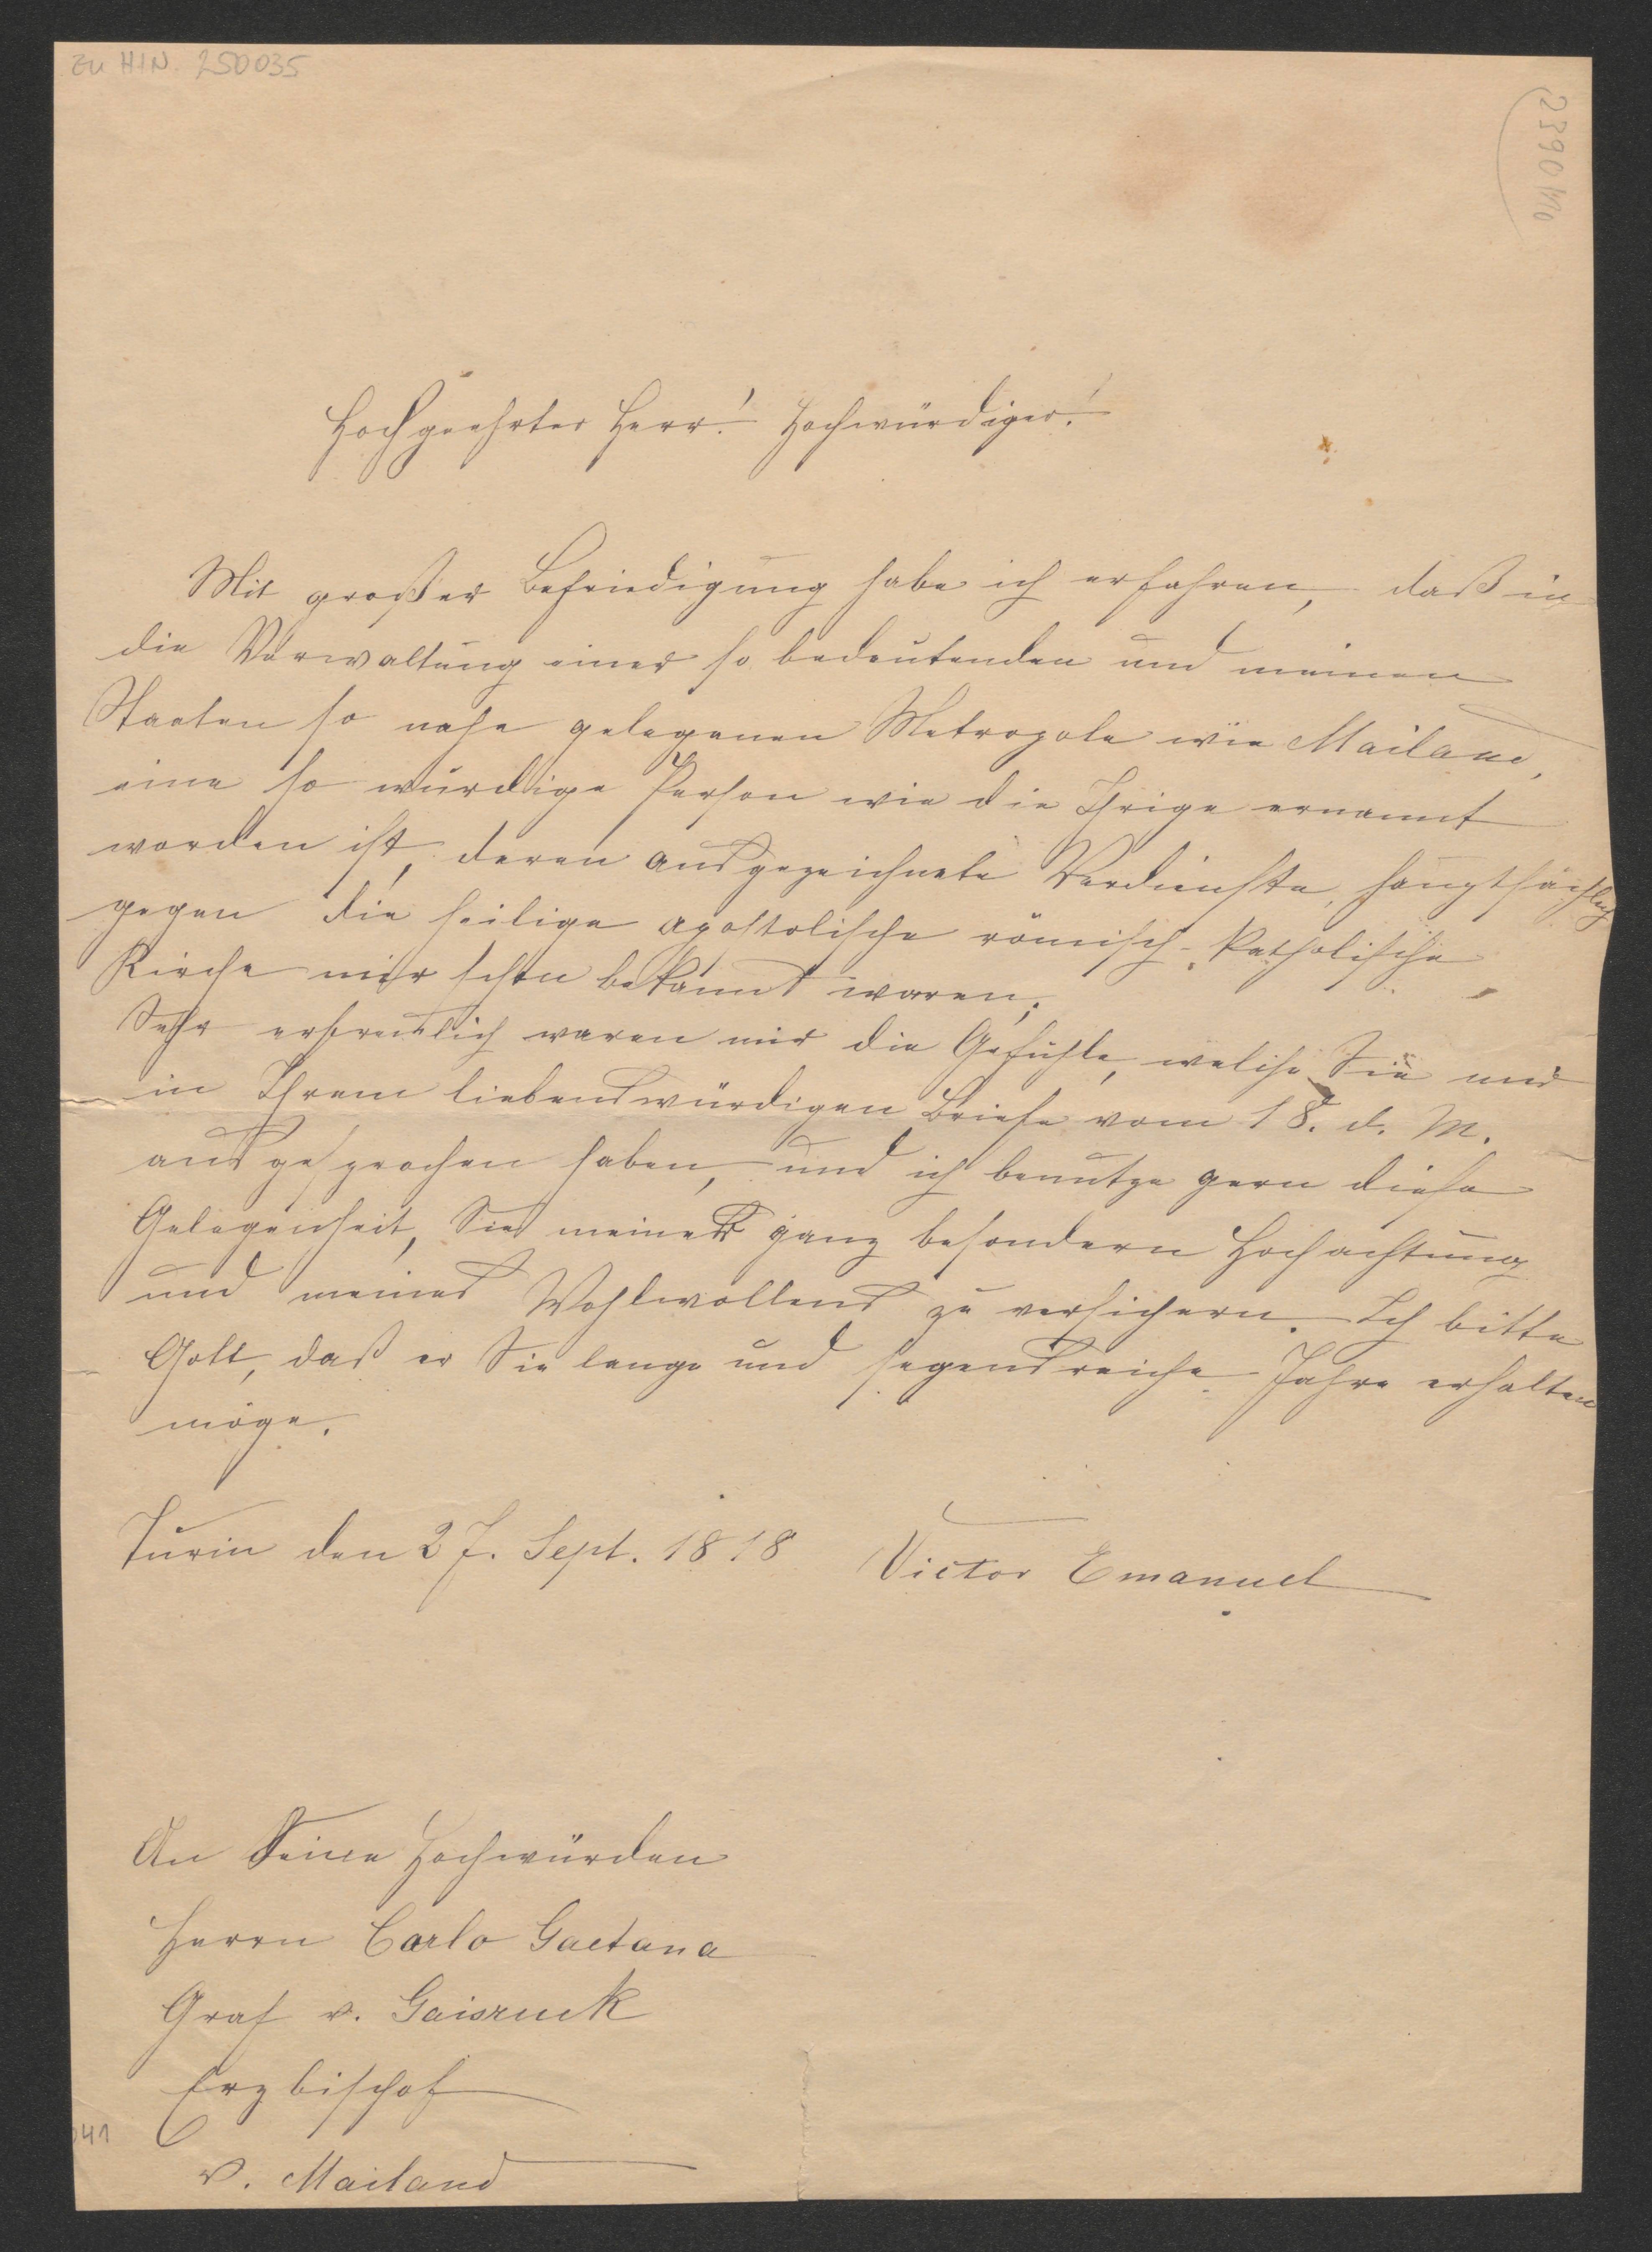 zu HIN. 250035
Hochgeehrter Herr! Hochwürdiger!
Mit großer Befriedigung habe ich erfahren, daß in
die Verwaltung einer so bedeutenden und meinen
Staaten so nahe gelegenen Metropole wie Mailand,
eine so würdige Person wie die Ihrige ernannt
worden ist, deren ausgezeichnete Verdienste, hauptsächlich
gegen die heilige apostolische römisch-katholische
Kirche mir schon bekannt waren.
Sehr erfreulich waren mir die Gefühle, welche Sie mir
in Ihrem liebenswürdigen Briefe vom 18. d. M.
ausgesprochen haben, und ich benutze gern diese
Gelegenheit, Sie meiner ganz besondern Hochachtung
und meines Wohlwollens zu versichern. Ich bitte
Gott, daß er Sie lange und segensreiche Jahre erhalten
möge.
Turin den 27. Sept. 1818 Victor Emanuel
An Seine Hochwürden
Herrn Carlo Gaetana
Graf v. Gaisruck
Erzbischof
v. Mailand